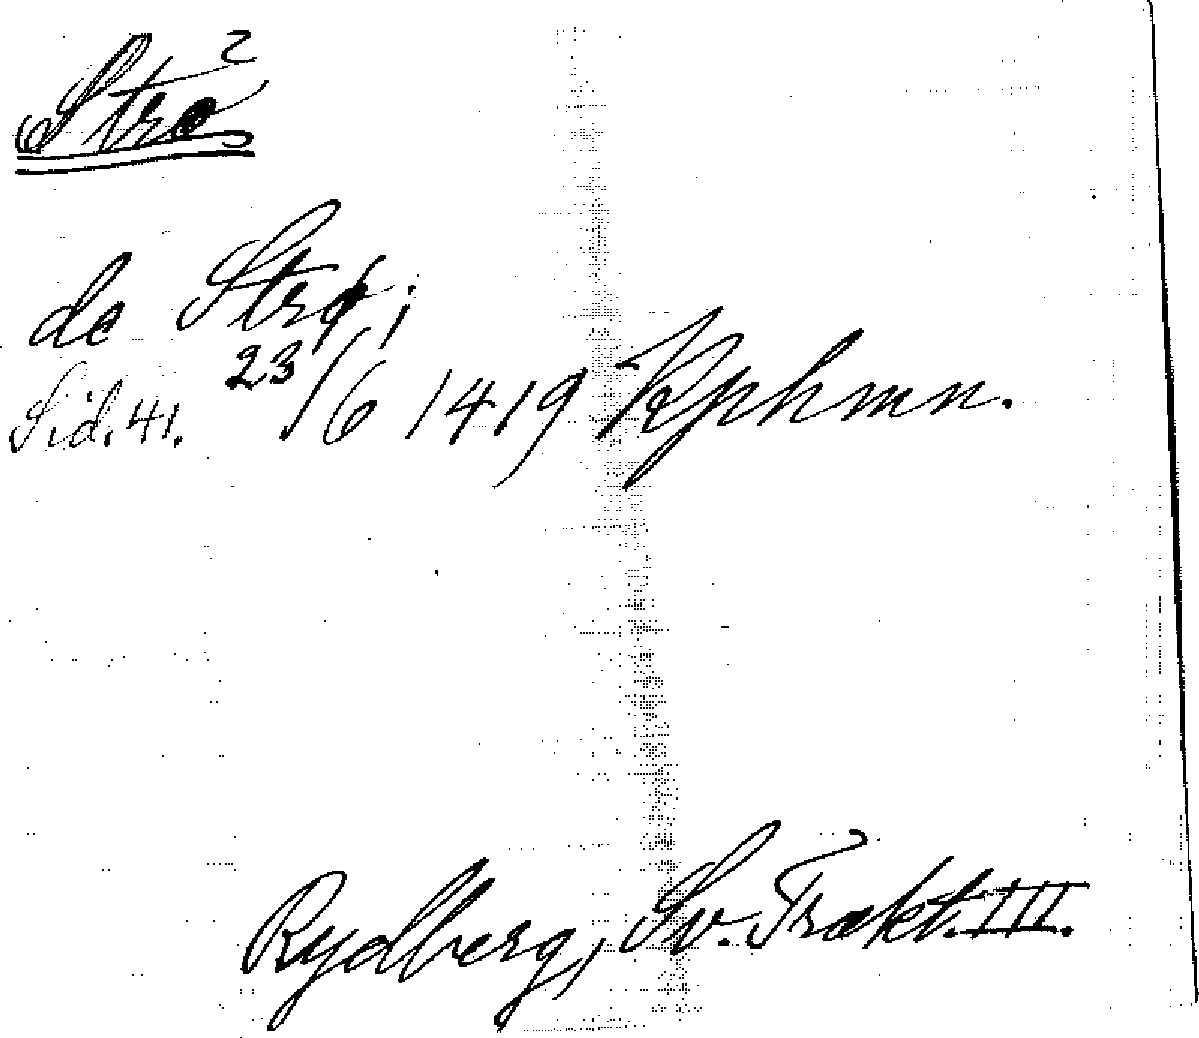 Strö 2
de Strø;
23/6 1419 Kphmn.
Sid. 41.
Rydberg, Sv. Trakt. III.